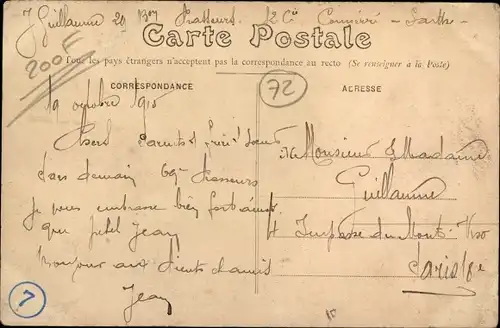 J Guillaume 29 Bon Chasseurs 12 Cie Connerré - Sarthe
Carte Postale
200F
Tous les pays étrangers n'acceptent pas la correspondance au recto (Se renseigner à la Poste)
CORRESPONDANCE
ADRESSE
72
19 octobre 1915
Chers Parents et
demain 69e Chasseurs
Je vous embrasse bien fort ainsi
que petit Jean
Bonjour aux
Jean
Monsieur & Madame
Guillaume
4 Impasse du Mont
Paris 18e
7